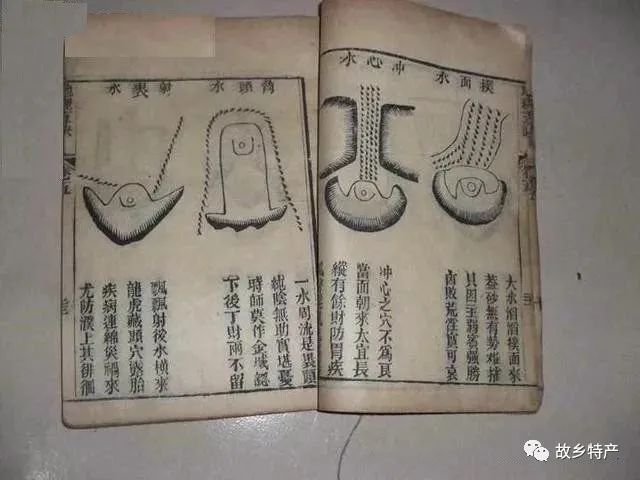 撲面水
大水滔滔撲面來
蓋砂無有勢難摧
只因主弱賓強勝
敗荒淫實可哀
冲心水
冲心之穴不為良
當面朝來太直長
縱有餘財防胃疾
頭水
一水周流是裹頭
純陰無助實堪憂
時師莫作金城認
下後丁財兩不留
射水
飄飄射後水橫來
龍虎藏頭穴露胎
疾病連綿災禍來
尤防濮上其徘徊
故乡特产